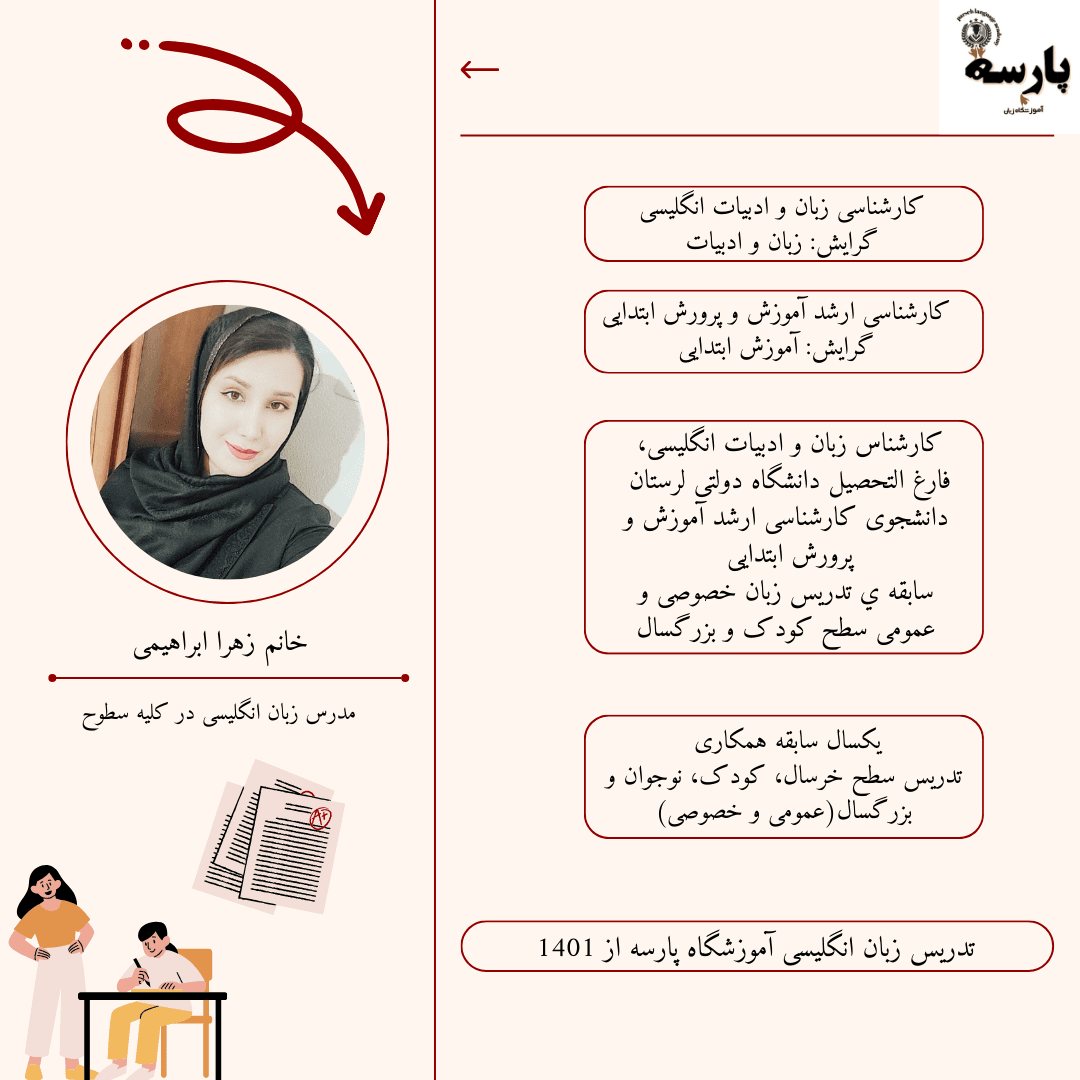 parseh language academy
پارسه
آموزشگاه زبان
کارشناسی زبان و ادبیات انگلیسی
گرایش: زبان و ادبیات
کارشناسی ارشد آموزش و پرورش ابتدایی
گرایش: آموزش ابتدایی
کارشناس زبان و ادبیات انگلیسی،
فارغ التحصیل دانشگاه دولتی لرستان
دانشجوی کارشناسی ارشد آموزش و
پرورش ابتدایی
سابقه ي تدریس زبان خصوصی و
عمومی سطح کودک و بزرگسال
یکسال سابقه همکاری
تدریس سطح خرسال، کودک، نوجوان و
بزرگسال(عمومی و خصوصی)
تدریس زبان انگلیسی آموزشگاه پارسه از 1401
خانم زهرا ابراهیمی
مدرس زبان انگلیسی در کلیه سطوح
A+